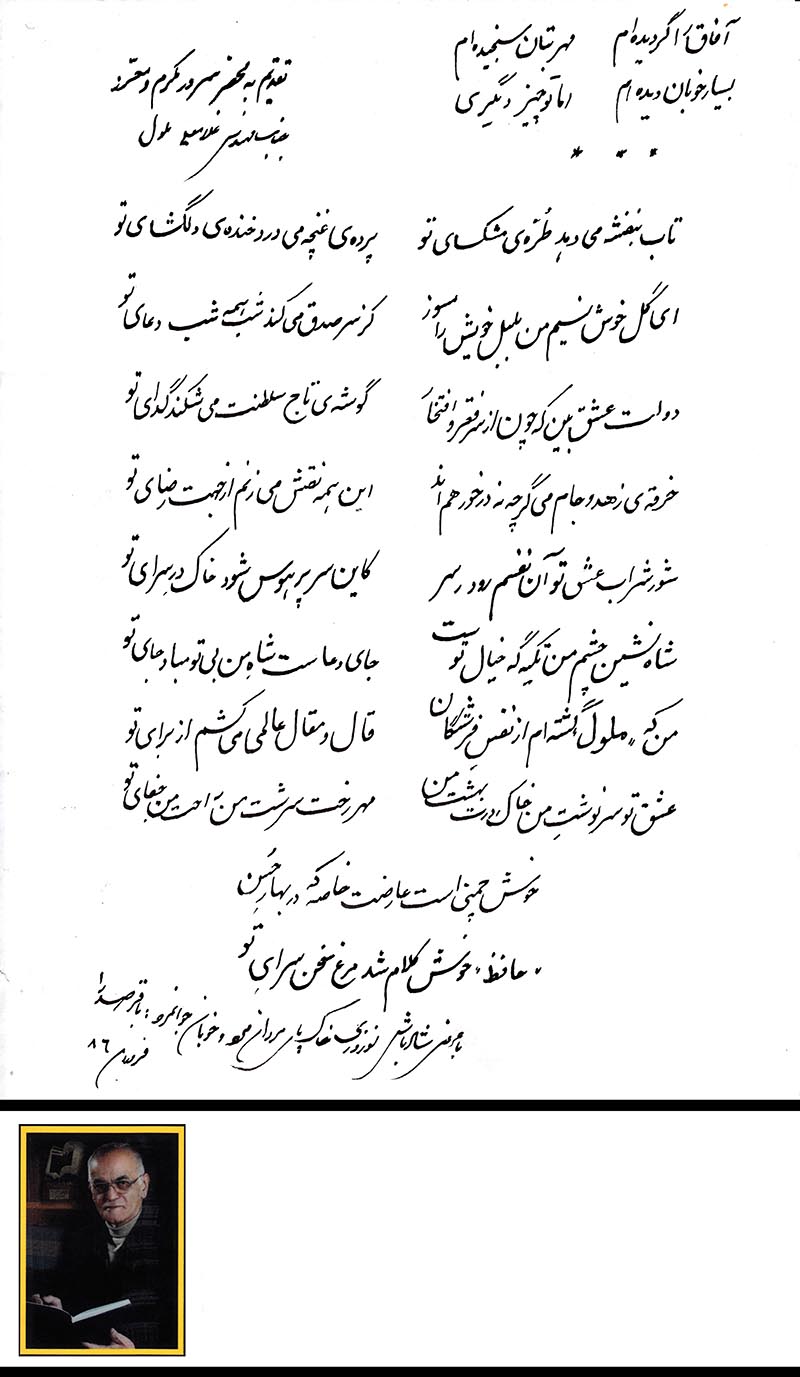 آفاق را گردیده‌ام مهر بتان سنجیده‌ام
بسیار خوبان دیده‌ام اما تو چیز دیگری
تقدیم به محضر سرور مکرم و معزز
جناب مهندس ملول
* * *
تاب بنفشه می‌دهد طُرّه‌ی مشکسای تو پرده‌ی غنچه می‌درد خنده‌ی دلگشای تو
ای گل خوش نسیم من بلبل خویش را مسوز کز سر صدق می‌کند شب همه شب دعای تو
دولت عشق بین که چون از سر فقر و افتخار گوشه‌ی تاج سلطنت می‌شکند گدای تو
خرقه‌ی زهد و جام می گرچه نه درخور هم‌اند این همه نقش می‌زنم از جهت رضای تو
شور شراب عشق تو آن نفسم رود ز سر کاین سر پر هوس شود خاک درِ سرای تو
شاه نشین چشم من تکیه گه خیال توست جای دعاست شاهِ من بی تو مباد جای تو
من که «ملول» گشته‌ام از نفسِ فرشتگان قال و مقال عالمی می‌کشم از برای تو
عشق تو سرنوشتِ من خاک درت بهشت من مهر رخت سرشت من راحت من جفای تو
خوش چمنی است عارضت خاصه که در بهارِ حُسن
«حافظ» خوش کلام شد مرغ سخن سرایِ تو
با عرض شادباش نوروزی خاک پای مردان و خوبان جوانمرد: باقر صدرا
فروردین ۸۶